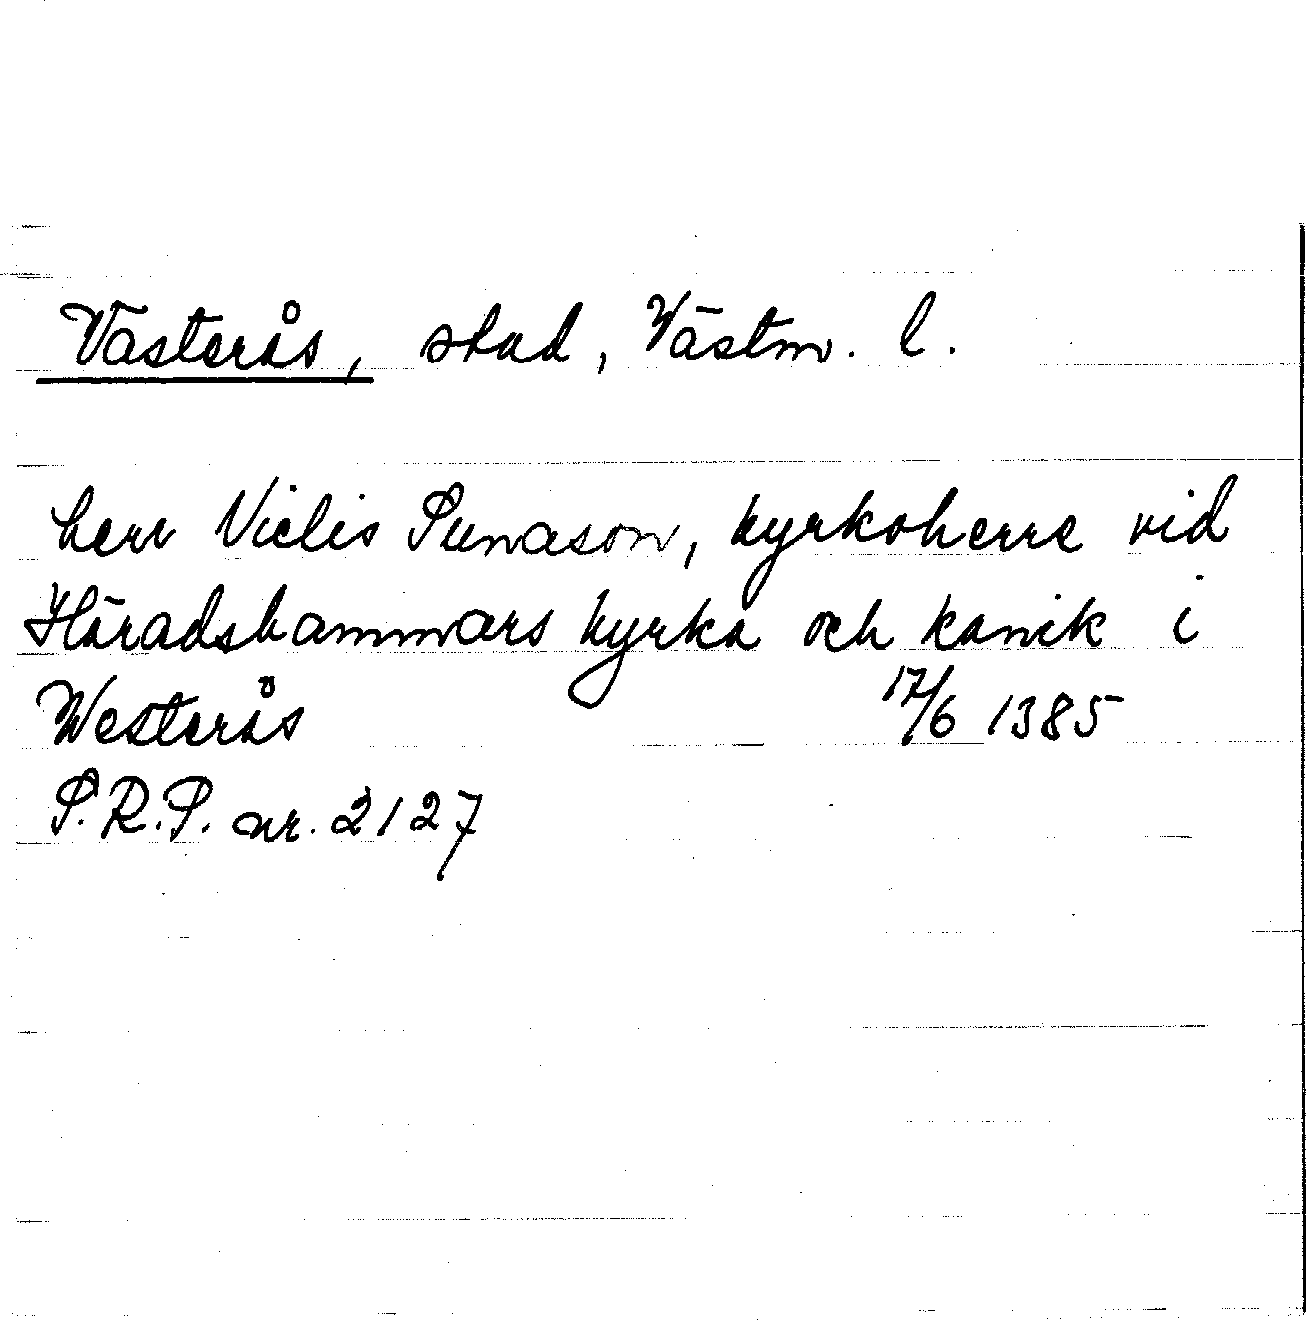 Västerås, stad, Västm. l.
herr Niclis Sunason, kyrkoherre vid
Häradshammars kyrka och kanik i
Westerås 17/6 1385
S.R.P. nr. 2127